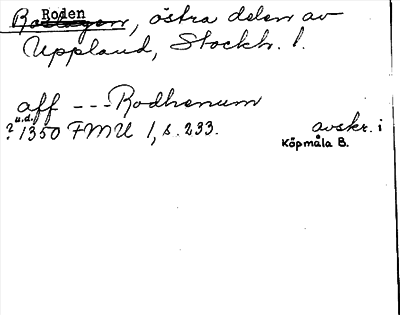 Roden
Roslagen, östra delen av
Uppland, Stockh. l.
aff --- Rodhenum
u.d.
? 1350 FMU 1, s. 233. avskr. i
Köpmåla B.